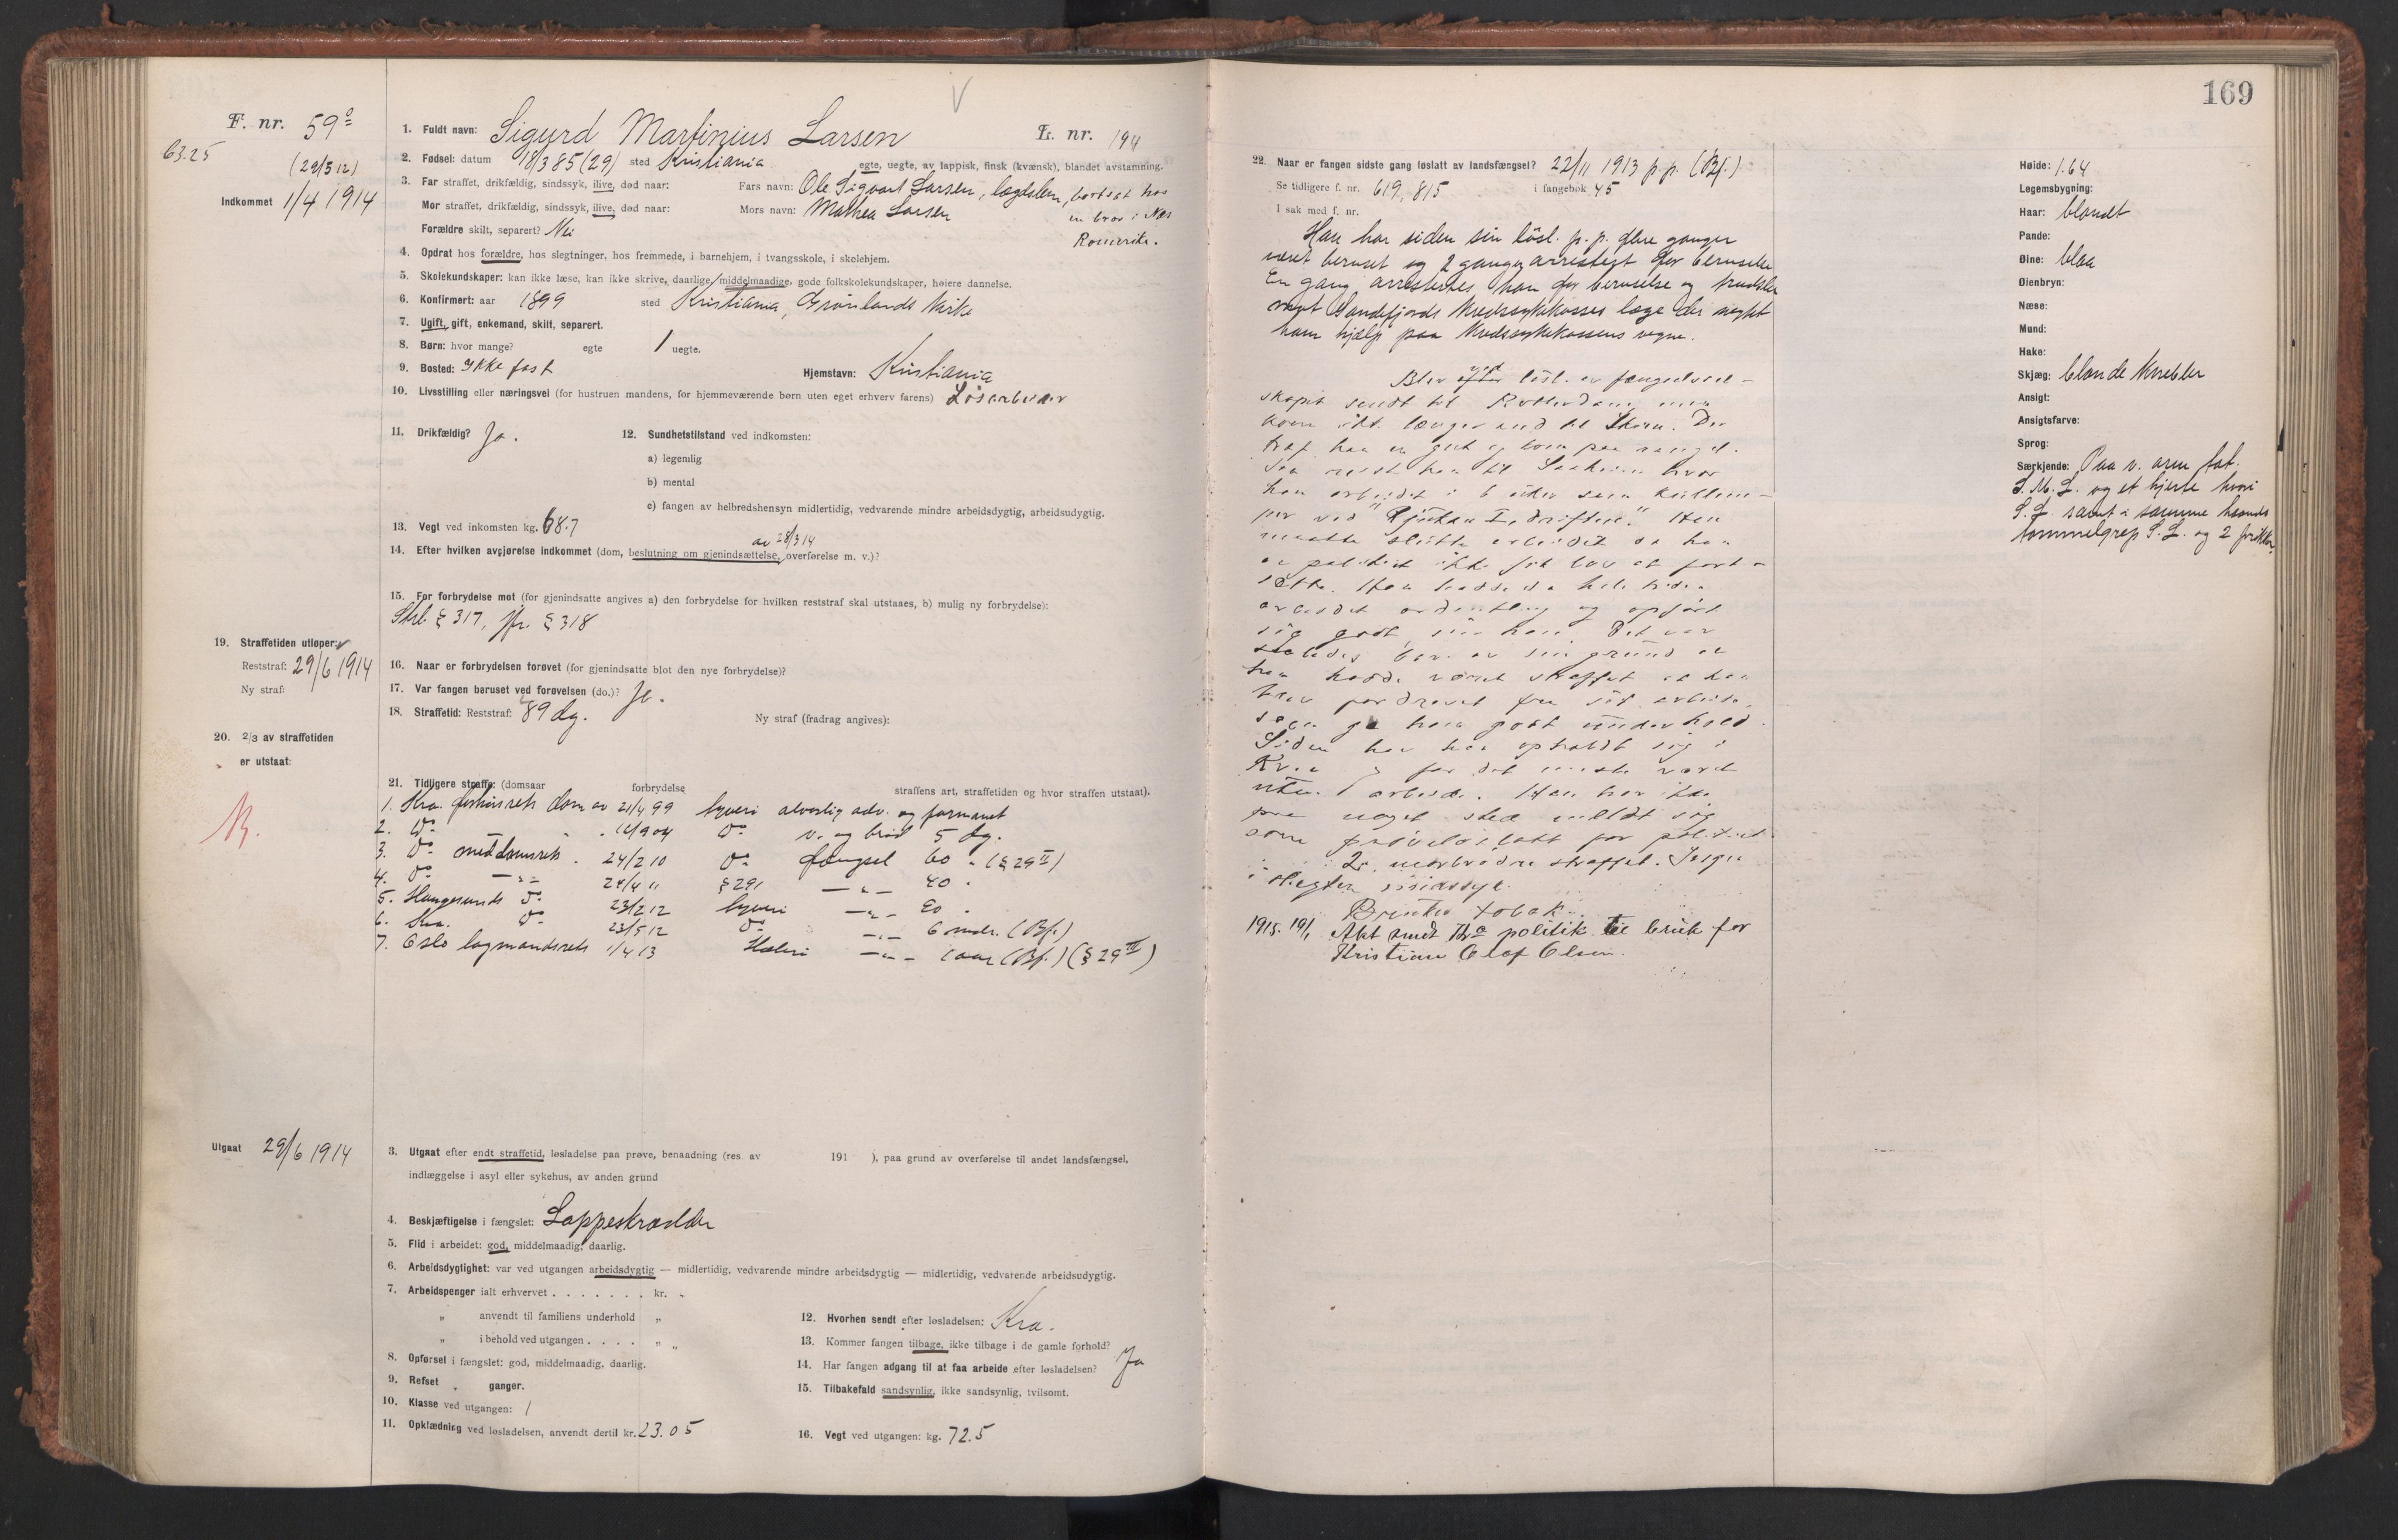 169
F. nr. 59
63.25
(29/3 12)
Indkommet 1/4 1914
1. Fuldt navn: Sigurd Martinius Larsen L. nr. 194
2. Fødsel: datum 18/3 85 (29) sted Kristiania egte, uegte, av lappisk, finsk (kvænsk), blandet avstamning.
3. Far straffet, drikfældig, sindssyk, ilive, død naar: Fars navn: Ole Sigvart Larsen, lægdslem, bortsat hos
Mor straffet, drikfældig, sindssyk, ilive, død naar: Mors navn: Mathea Larsen en bror i Nes
Forældre skilt, separert? Nei Romerike.
4. Opdrat hos forældre, hos slegtninger, hos fremmede, i barnehjem, i tvangsskole, i skolehjem.
5. Skolekundskaper: kan ikke læse, kan ikke skrive, daarlige, middelmaadige, gode folkskolekundskaper, høiere dannelse.
6. Konfirmert: aar 1899 sted Kristiania, Grønlands kirke
7. Ugift, gift, enkemand, skilt, separert.
8. Børn: hvor mange? egte 1 uegte.
9. Bosted: Ikke fast Hjemstavn: Kristiania
10. Livsstilling eller næringsvei (for hustruen mandens, for hjemmeværende børn uten eget erhverv farens) Løsarbeider
11. Drikfældig? Ja. 12. Sundhetstilstand ved indkomsten:
a) legemlig
b) mental
c) fangen av helbredshensyn midlertidig, vedvarende mindre arbeidsdygtig, arbeidsudygtig.
13. Vegt ved inkomsten kg. 68.7
av 28/3 14
14. Efter hvilken avgjørelse indkommet (dom, beslutning om gjenindsættelse, overførelse m. v.)?
15. For forbrydelse mot (for gjenindsatte angives a) den forbrydelse for hvilken reststraf skal utstaaes, b) mulig ny forbrydelse):
Strl. § 317, jfr. § 318
19. Straffetiden utløper:
Reststraf: 29/6 1914
Ny straf:
16. Naar er forbrydelsen forøvet (for gjenindsatte blot den nye forbrydelse)?
17. Var fangen beruset ved forøvelsen (do.)? Ja.
18. Straffetid: Reststraf: 89 dg. Ny straf (fradrag angives):
20. 2/3 av straffetiden
er utstaat:
21. Tidligere straffe: (domsaar forbrydelse straffens art, straffetiden og hvor straffen utstaat).
1. Kra. forhørsrets dom av 21/4 99 tyveri alvorlig adv. og formanet
2. Do 16/9 04 Do v. og brød 5 dg.
3. Do meddomsrets 24/2 10 Do fængsel 60 " (§ 29 II)
4. Do — " — 24/4 11 § 291 — " — 40 "
5. Haugesunds Do 23/2 12 tyveri — " — 20 "
6. Kra. Do 23/5 12 Do — " — 6 mdr. (Bf.)
7. Oslo lagmandsrets 1/4 13 Hæleri — " — 1 aar (Bf.) (§ 29 III)
Utgaat 29/6 1914
3. Utgaat efter endt straffetid, løsladelse paa prøve, benaadning (res. av 191 ), paa grund av overførelse til andet landsfængsel,
indlæggelse i asyl eller sykehus, av anden grund
4. Beskjæftigelse i fængslet: Lappeskrædder
5. Flid i arbeidet: god, middelmaadig, daarlig.
6. Arbeidsdygtighet: var ved utgangen arbeidsdygtig — midlertidig, vedvarende mindre arbeidsdygtig — midlertidig, vedvarende arbeidsudygtig.
7. Arbeidspenger ialt erhvervet . . . . . . . kr.
" anvendt til familiens underhold "
" i behold ved utgangen . . . . . "
8. Opførsel i fængslet: god, middelmaadig, daarlig.
9. Refset ganger.
10. Klasse ved utgangen: 1
11. Opklædning ved løsladelsen, anvendt dertil kr. 23.05
12. Hvorhen sendt efter løsladelsen: Kra.
13. Kommer fangen tilbage, ikke tilbage i de gamle forhold?
14. Har fangen adgang til at faa arbeide efter løsladelsen? Ja
15. Tilbakefald sandsynlig, ikke sandsynlig, tvilsomt.
16. Vegt ved utgangen: kg. 72.5
22. Naar er fangen sidste gang løslatt av landsfængsel? 22/11 1913 p.p. (Bf.)
Se tidligere f. nr. 619, 815 i fangebok 45
I sak med f. nr.
Han har siden sin løsl. p.p. flere ganger
været beruset og 2 ganger arrestert for beruselse
En gang arresteres han for beruselse og trudsler
mot Sandefjords Kredssykekasses læge der negtet
ham hjælp paa Kredssykekassens vegne.
Blev efter ved løsl. av fængselssel-
skapet sendt til Rotterdam men
kom ikke længer end til Skien. Der
traf han en gut og kom paa rangel.
Saa reiste han til Saaheim hvor
han arbeidet i 6 uker som kullem-
per ved "Rjukan I, driften". Han
maatte slutte arbeidet da han
av politiet ikke fik lov at fort-
sætte. Han hadde da hele tiden
arbeidet ordentlig og opført
sig godt, sier han. Det var
saaledes bare av den grund at
han hadde været straffet at han
blev fordrevet fra sit arbeide,
som ga ham godt underhold.
Siden har han opholdt sig i
Kr.a og for det meste været
uten arbeide. Han har ikke
paa noget sted meldt sig
som prøveløslatt for politiet.
2 brødre straffet. Ingen
i slegten sindssyk.
Bruker tobak.
1915. 19/1 Akt sendt Kra politik. til bruk for
Kristian Olaf Olsen.
Høide: 1.64
Legemsbygning:
Haar: blondt
Pande:
Øine: blaa
Øienbryn:
Næse:
Mund:
Hake:
Skjæg: blonde Knebler
Ansigt:
Ansigtsfarve:
Sprog:
Særkjende: Paa v. arm tat.
S. M. L. og et hjerte hvori
S. L. samt i samme haands
tommelgrep S. L. og 2 prikker.